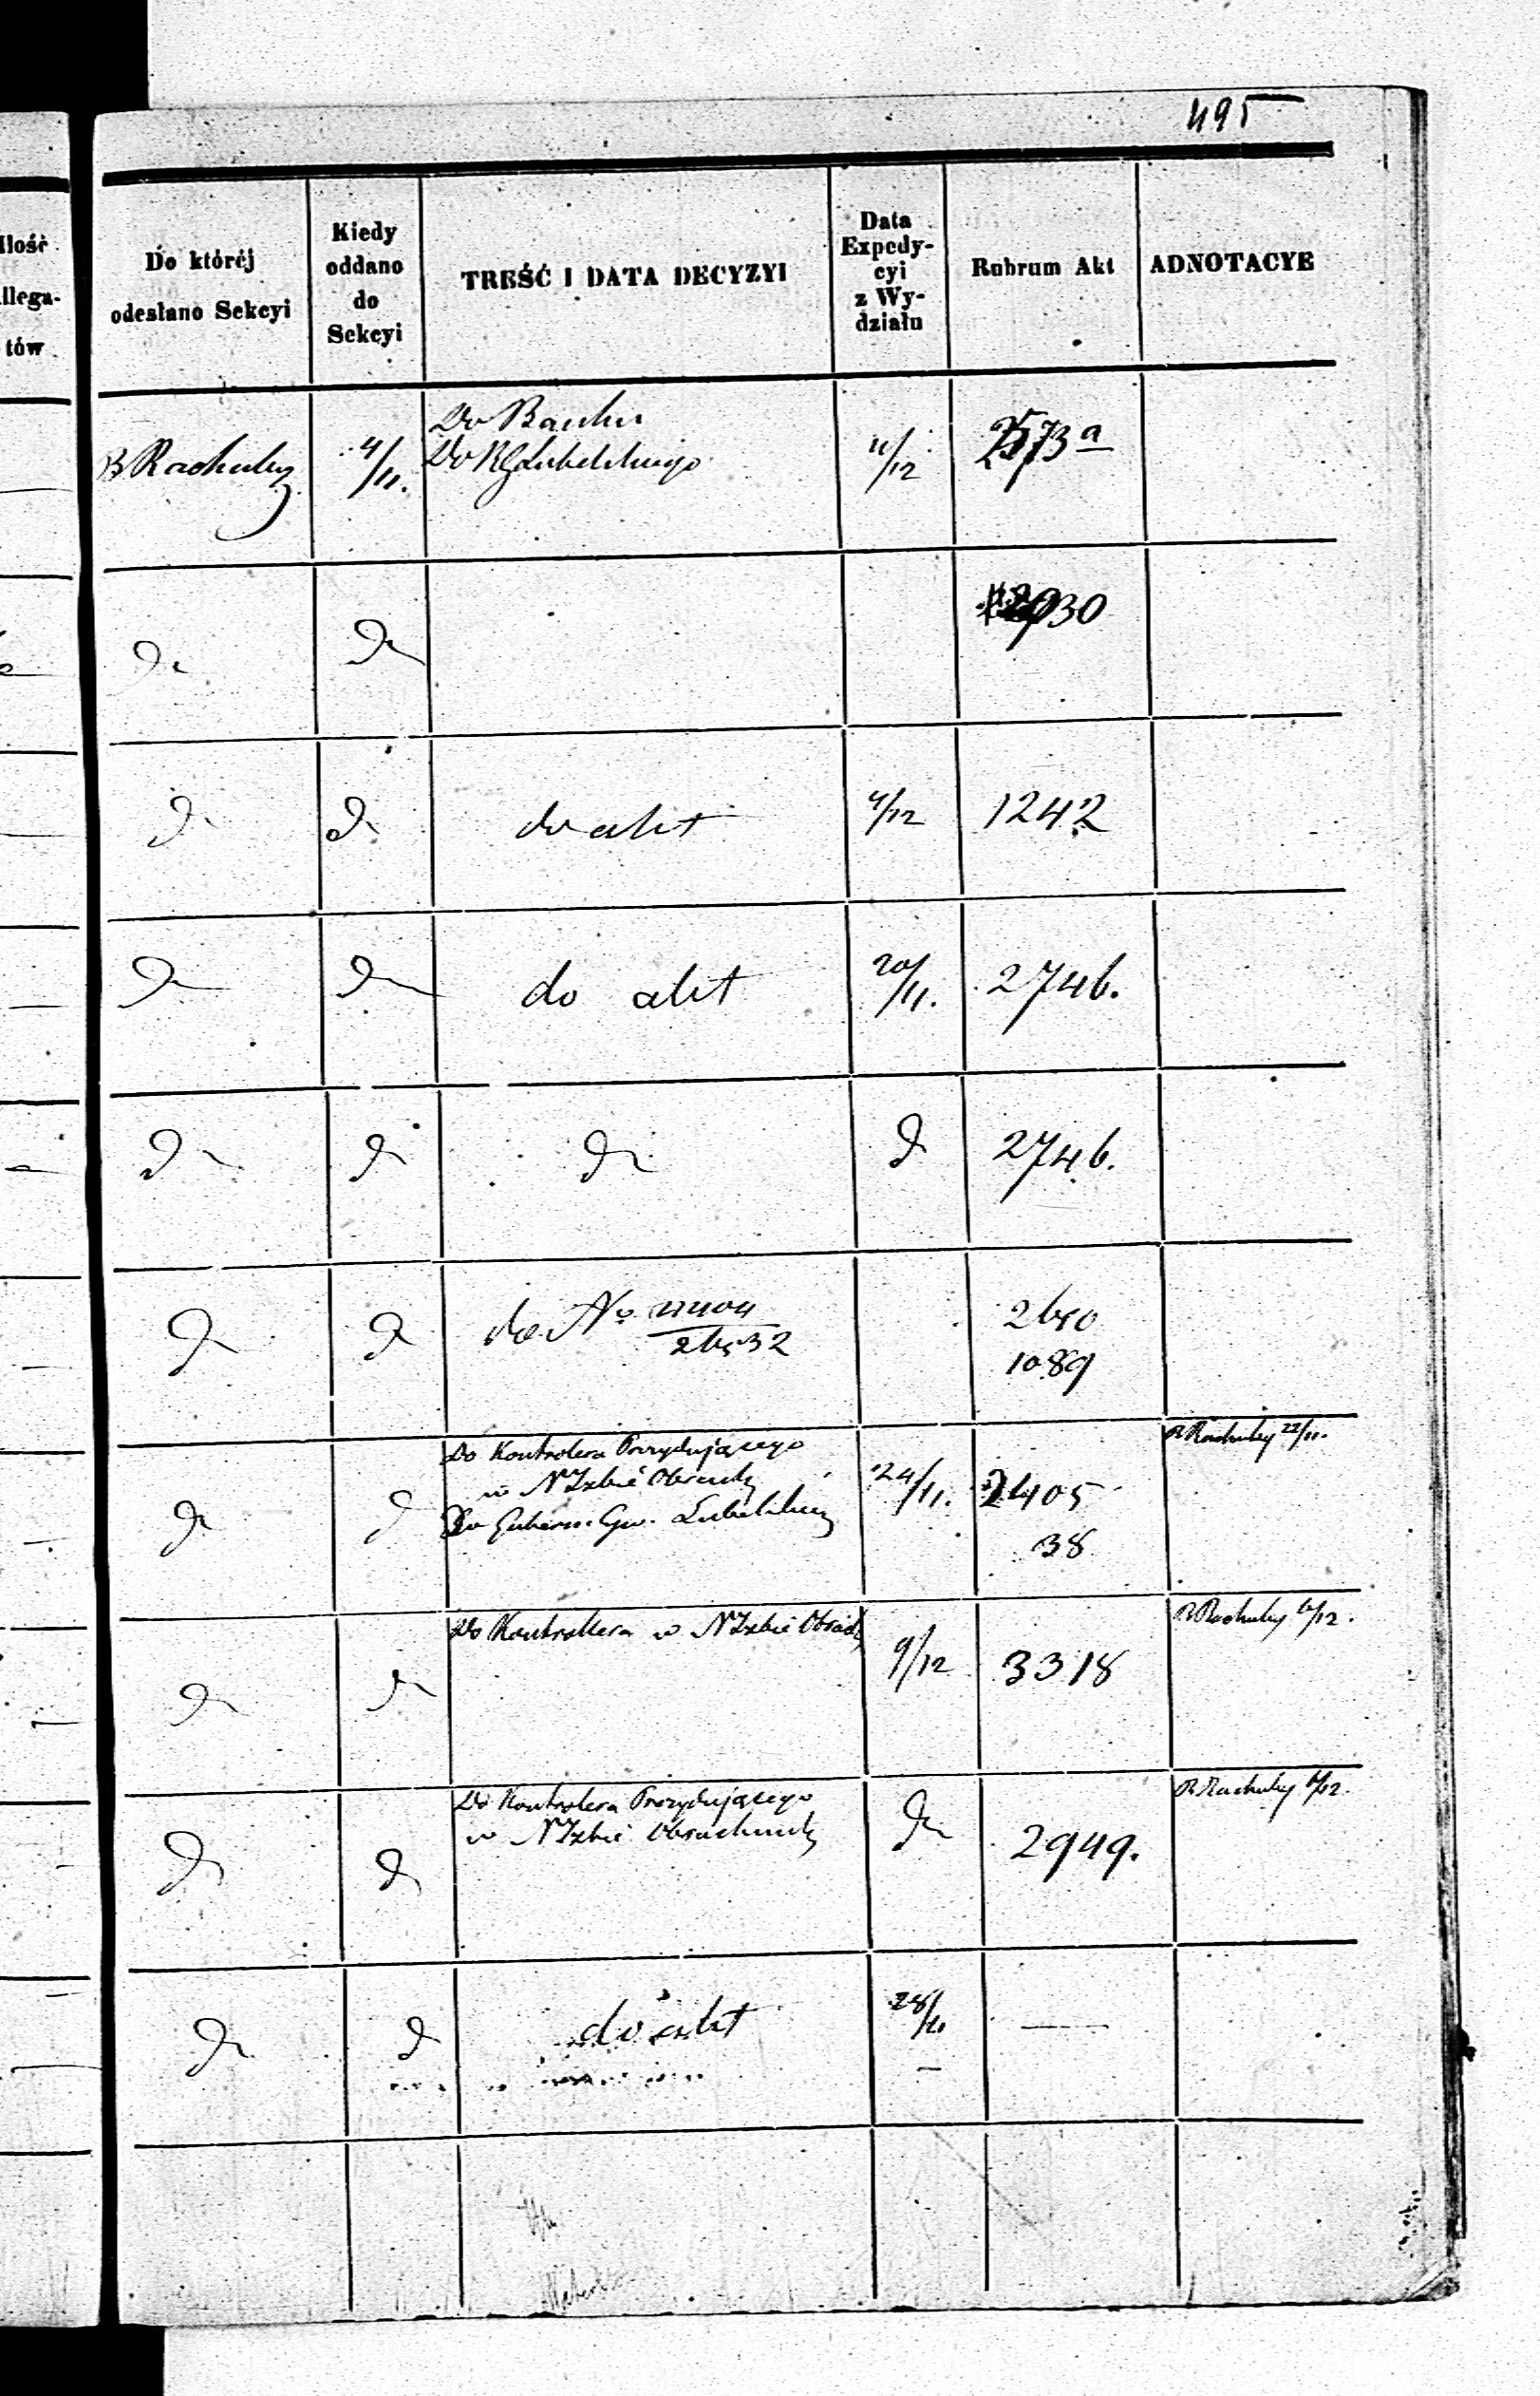 495
Ilość
allega-
tów
Do któréj
odesłano Sekcyi
Kiedy
oddano
do
Sekcyi
TREŚĆ I DATA DECYZYI
Data
Expedy-
cyi
z Wy-
działu
Rubrum Akt
ADNOTACYE
B Rachuby 4/11. Do Banku
Do RG Lubelskiego 11/12 2573 a
D D 2930
D D do akt 4/12 1242
D D do akt 20/11. 2746.
D D D D 2746.
D D do No 2650
1089
D D Do Kontrolera Prezydującego
w NIzbie Obrach 24/11. 2405 R Rachuby 22/11.
Do Gubern. Cyw. Lubelskiey 38
D D Do Kontrollera w NIzbie Obrach 9/12 3318 R Rachuby 6/12.
D D Do Kontrolera Prezydującego
w NIzbie Obrachunk D 2949. R Rachuby 6/12.
D D do akt 28/11 —